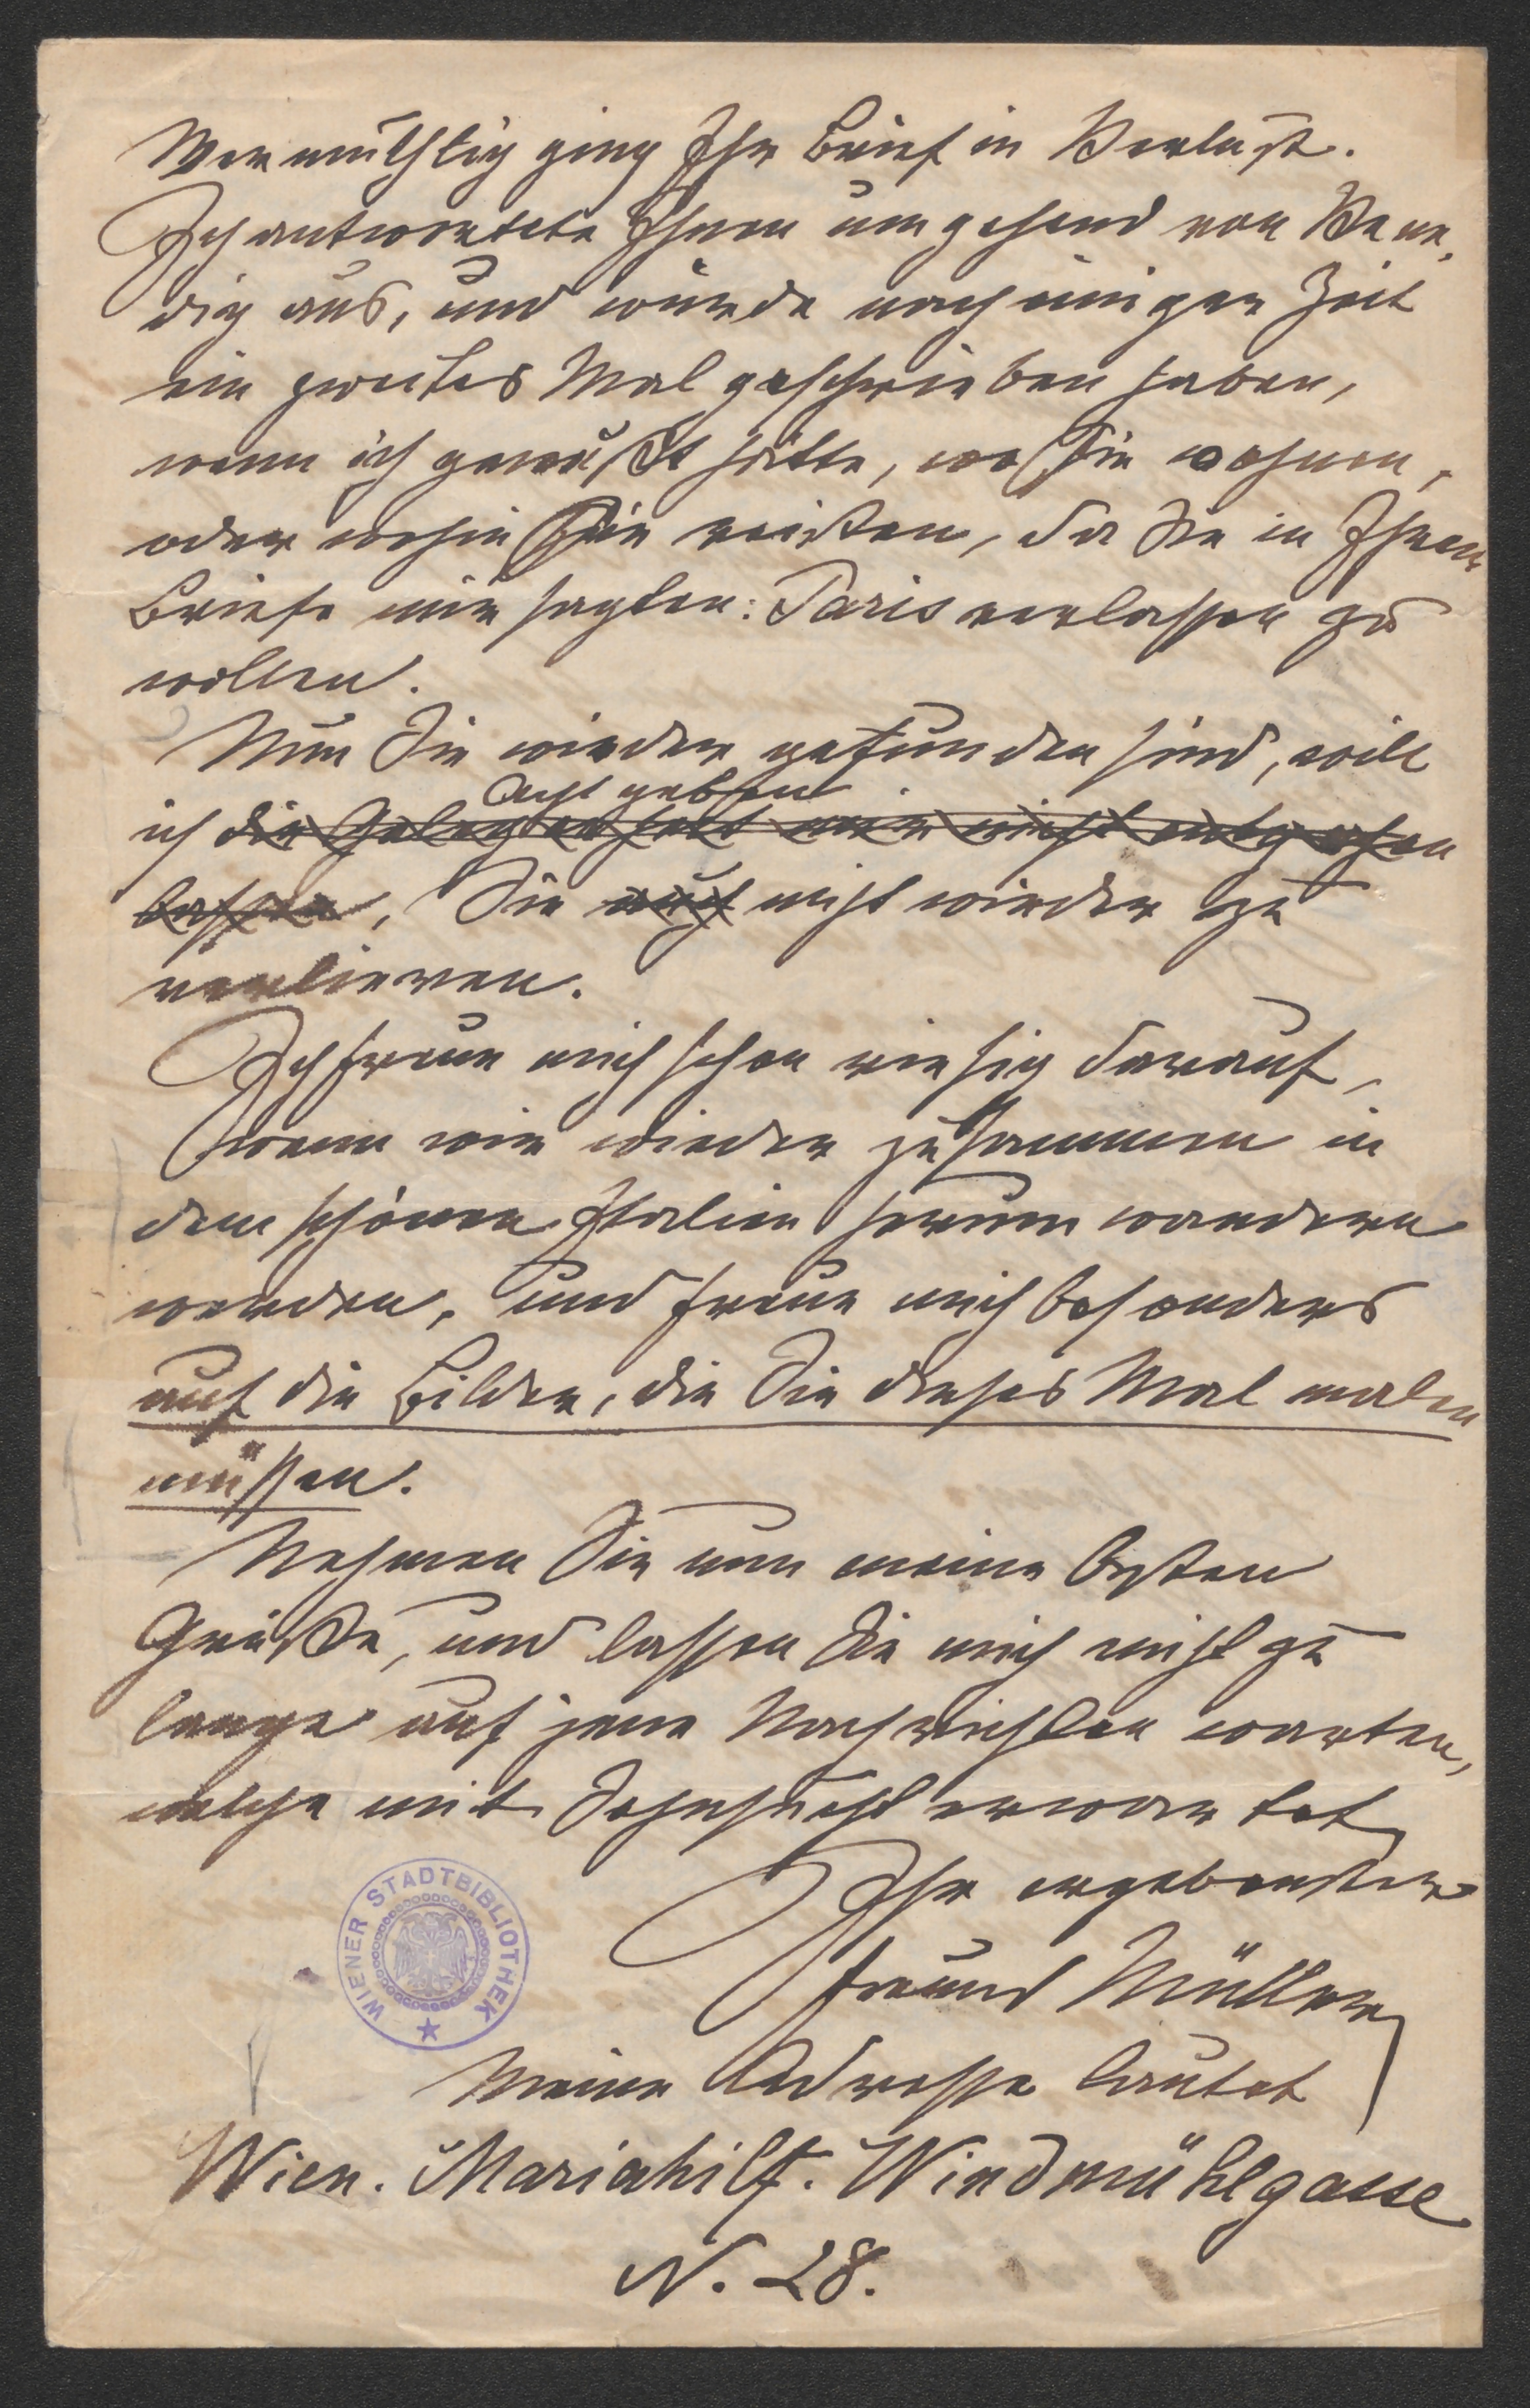 Vermuthlig ging Ihr Brief in Verlust.
Ich antwortete Ihnen umgehend von Vene-
dig aus, und würde nach einiger Zeit
ein zweites Mal geschrieben haben,
wenn ich gewußt hätte, wo Sie wohnen,
oder wohin Sie reisten, da Sie in Ihrem
Briefe mir sagten: Paris verlassen zu
wollen.
Nun Sie wieder gefunden sind, will
Acht geben
ich die Gelegenheit mir nicht entgehen
lassen, Sie auch nicht wieder zu
verlieren.
Ich freue mich schon riesig darauf,
wenn wir wieder zusammen in
dem schönen Italien herum wandern
werden, und freue mich besonders
auf die Bilder, die Sie dieses Mal malen
müssen.
Nehmen Sie nun meine besten
Grüße, und lassen Sie mich nicht zu
lange auf jene Nachrichten warten,
welche mit Sehnsucht erwartet
Ihr ergebenster
Freund Müller
Meine Adresse lautet
Wien. Mariahilf. Windmühlgasse
N. 28.
WIENER STADTBIBLIOTHEK